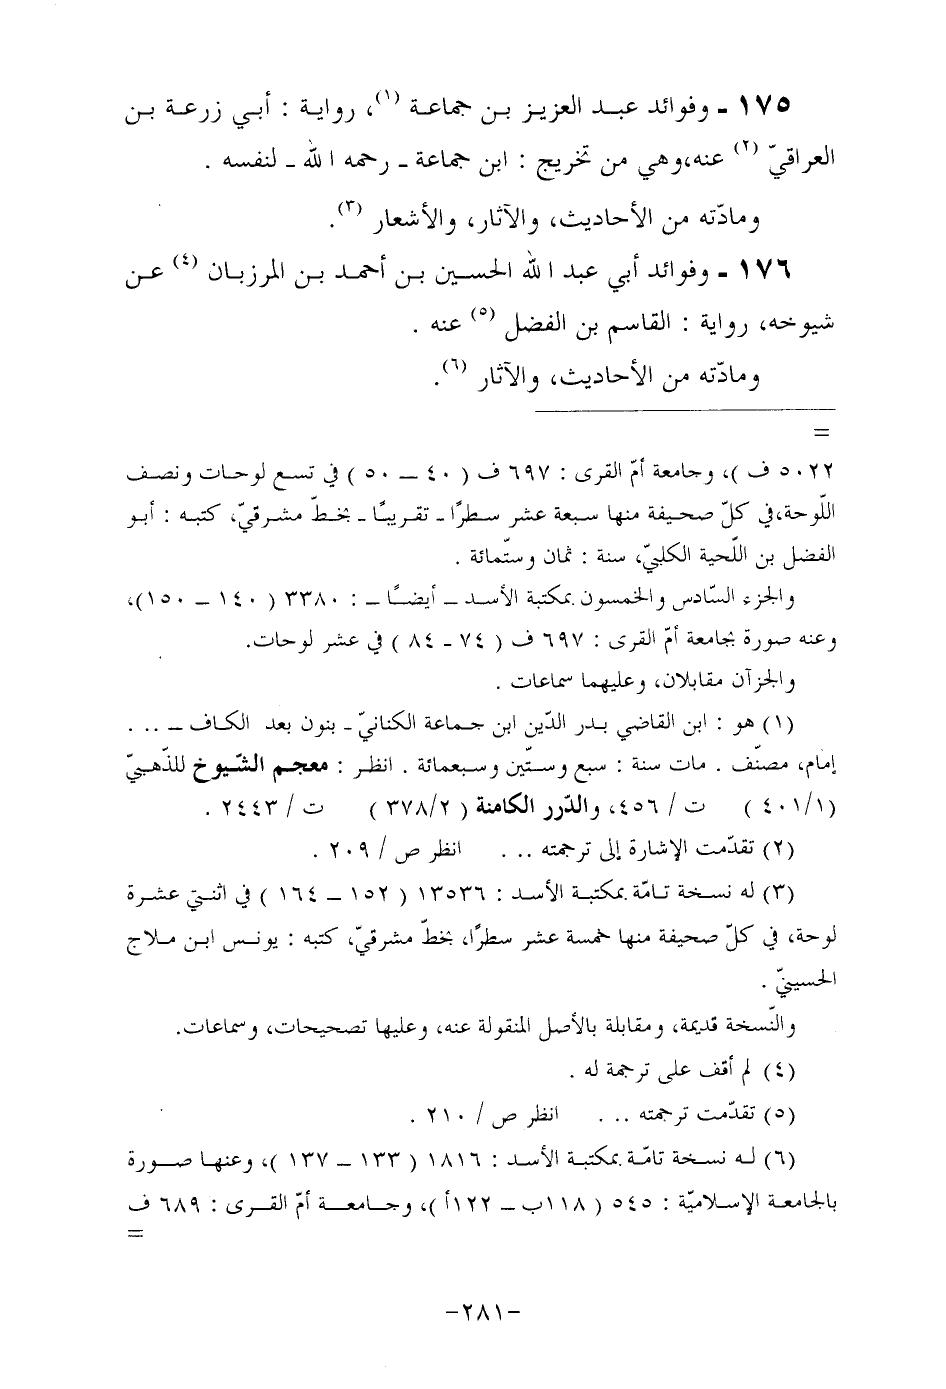 ١٧٥ ـ وفوائد عبد العزيز بن جماعة (١)، رواية : أبي زرعة بن
العراقيّ (٢) عنه،وهي من تخريج : ابن جماعة ـ رحمه الله ـ لنفسه .
ومادّته من الأحاديث، والآثار، والأشعار (٣).
١٧٦ ـ وفوائد أبي عبد الله الحسين بن أحمد بن المرزبان (٤) عن
شيوخه، رواية : القاسم بن الفضل (٥) عنه .
ومادّته من الأحاديث، والآثار (٦).
=
٥٠٢٢ ف )، وجامعة أمّ القرى : ٦٩٧ ف ( ٤٠ ــ ٥٠ ) في تسع لوحات ونصف
اللّوحة،في كلّ صحيفة منها سبعة عشر سطرًا ـ تقريبًا ـ بخطّ مشرقيّ، كتبه : أبو
الفضل بن اللّحية الكلبيّ، سنة : ثمان وستّمائة .
والجزء السّادس والخمسون بمكتبة الأسد ــ أيضًا ــ : ٣٣٨٠ ( ١٤٠ ــ ١٥٠)،
وعنه صورة بجامعة أمّ القرى : ٦٩٧ ف ( ٧٤ ـ ٨٤ ) في عشر لوحات.
والجزآن مقابلان، وعليهما سماعات .
(١) هو : ابن القاضي بدر الدّين ابن جماعة الكنانيّ ـ بنون بعد الكاف ــ .. .
إمام، مصنّف . مات سنة : سبع وستّين وسبعمائة . انظر : معجم الشّيوخ للذّهبيّ
(٤٠١/١ ) ت / ٤٥٦، والدّرر الكامنة ( ٣٧٨/٢ ) ت / ٢٤٤٣ .
(٢) تقدّمت الإشارة إلى ترجمته .. . انظر ص / ٢٠٩ .
(٣) له نسخة تامّة بمكتبة الأسد : ١٣٥٣٦ ( ١٥٢ ــ ١٦٤ ) في اثنتي عشرة
لوحة، في كلّ صحيفة منها خمسة عشر سطرًا، بخطّ مشرقيّ، كتبه : يونس ابن ملاج
الحسينيّ .
والنّسخة قديمة، ومقابلة بالأصل المنقولة عنه، وعليها تصحيحات، وسماعات.
(٤) لم أقف على ترجمة له .
(٥) تقدّمت ترجمته .. . انظر ص / ٢١٠ .
(٦) له نسخة تامّة بمكتبة الأسد : ١٨١٦ ( ١٣٣ ــ ١٣٧ )، وعنها صورة
بالجامعة الإسلاميّة : ٥٤٥ ( ١١٨ب ــ ١٢٢أ )، وجامعة أمّ القرى : ٦٨٩ ف
=
-٢٨١-